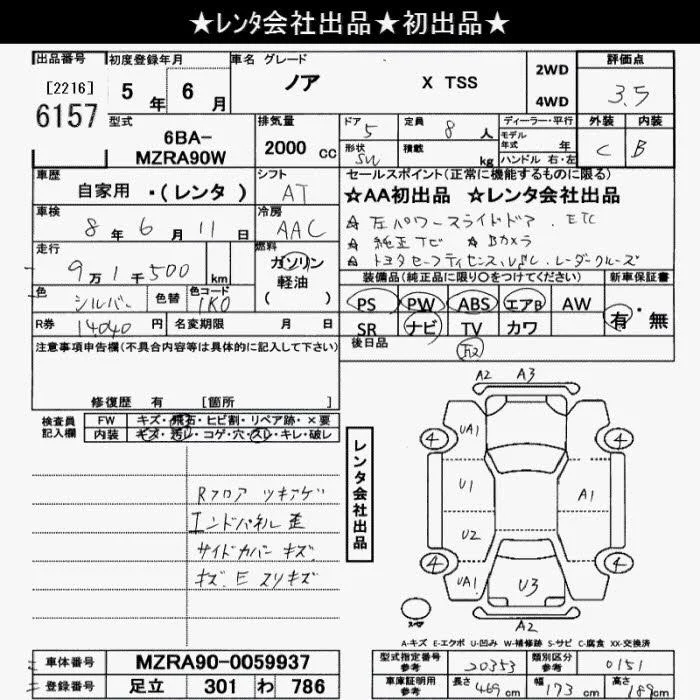 ★レンタ会社出品★初出品★
出品番号 初度登録年月 車名 グレード 評価点
[2216]
6157
5 年 6 月
ノア X TSS
2WD
4WD
3.5
型式 排気量 ドア 定員 ディーラー・平行 外装 内装
6BA-
MZRA90W
2000 cc
5 8 人
モデル年式 年
形状 SW 積載 kg ハンドル 右・左
C B
車歴 シフト セールスポイント(正常に機能するものに限る)
自家用 ・(レンタ) AT
☆AA初出品 ☆レンタ会社出品
車検 冷房
8 年 6 月 11 日 AAC
☆ 左パワースライドドア. ETC
☆ 純正TV ☆ Bカメラ
☆ トヨタセーフティセンス. レーダークルーズ
走行 燃料
9 万 1 千 500 km
ガソリン
軽油
( )
装備品(純正品に限り○をつけてください) 新車保証書
色 シルバー 色替 色コード 1K0
PS PW ABS エアB AW
SR ナビ TV カワ
有・無
R券 14040 円 名変期限 月 日
後日品
注意事項申告欄(不具合内容等は具体的に記入して下さい)
修復歴 有 [箇所 ]
検査員
記入欄
FW キズ・飛石・ヒビ割・リペア跡・×要
内装 キズ・汚レ・コゲ・穴・スレ・キレ・破レ
Rフロア ツキアゲ
エンドパネル 歪
サイドカバー キズ.
キズ. E スリキズ
レンタ会社出品
A2 A3
4 UA1 4
U1 A1
U2
4 UA1 U3 4
A2
スペア
A-キズ E-エクボ U-凹み W-補修跡 S-サビ C-腐食 XX-交換済
車体番号 MZRA90-0059937
登録番号 足立 301 わ 786
型式指定番号参考 20353 類別区分参考 0151
車庫証明用参考 長さ 469 cm 幅 173 cm 高さ 189 cm